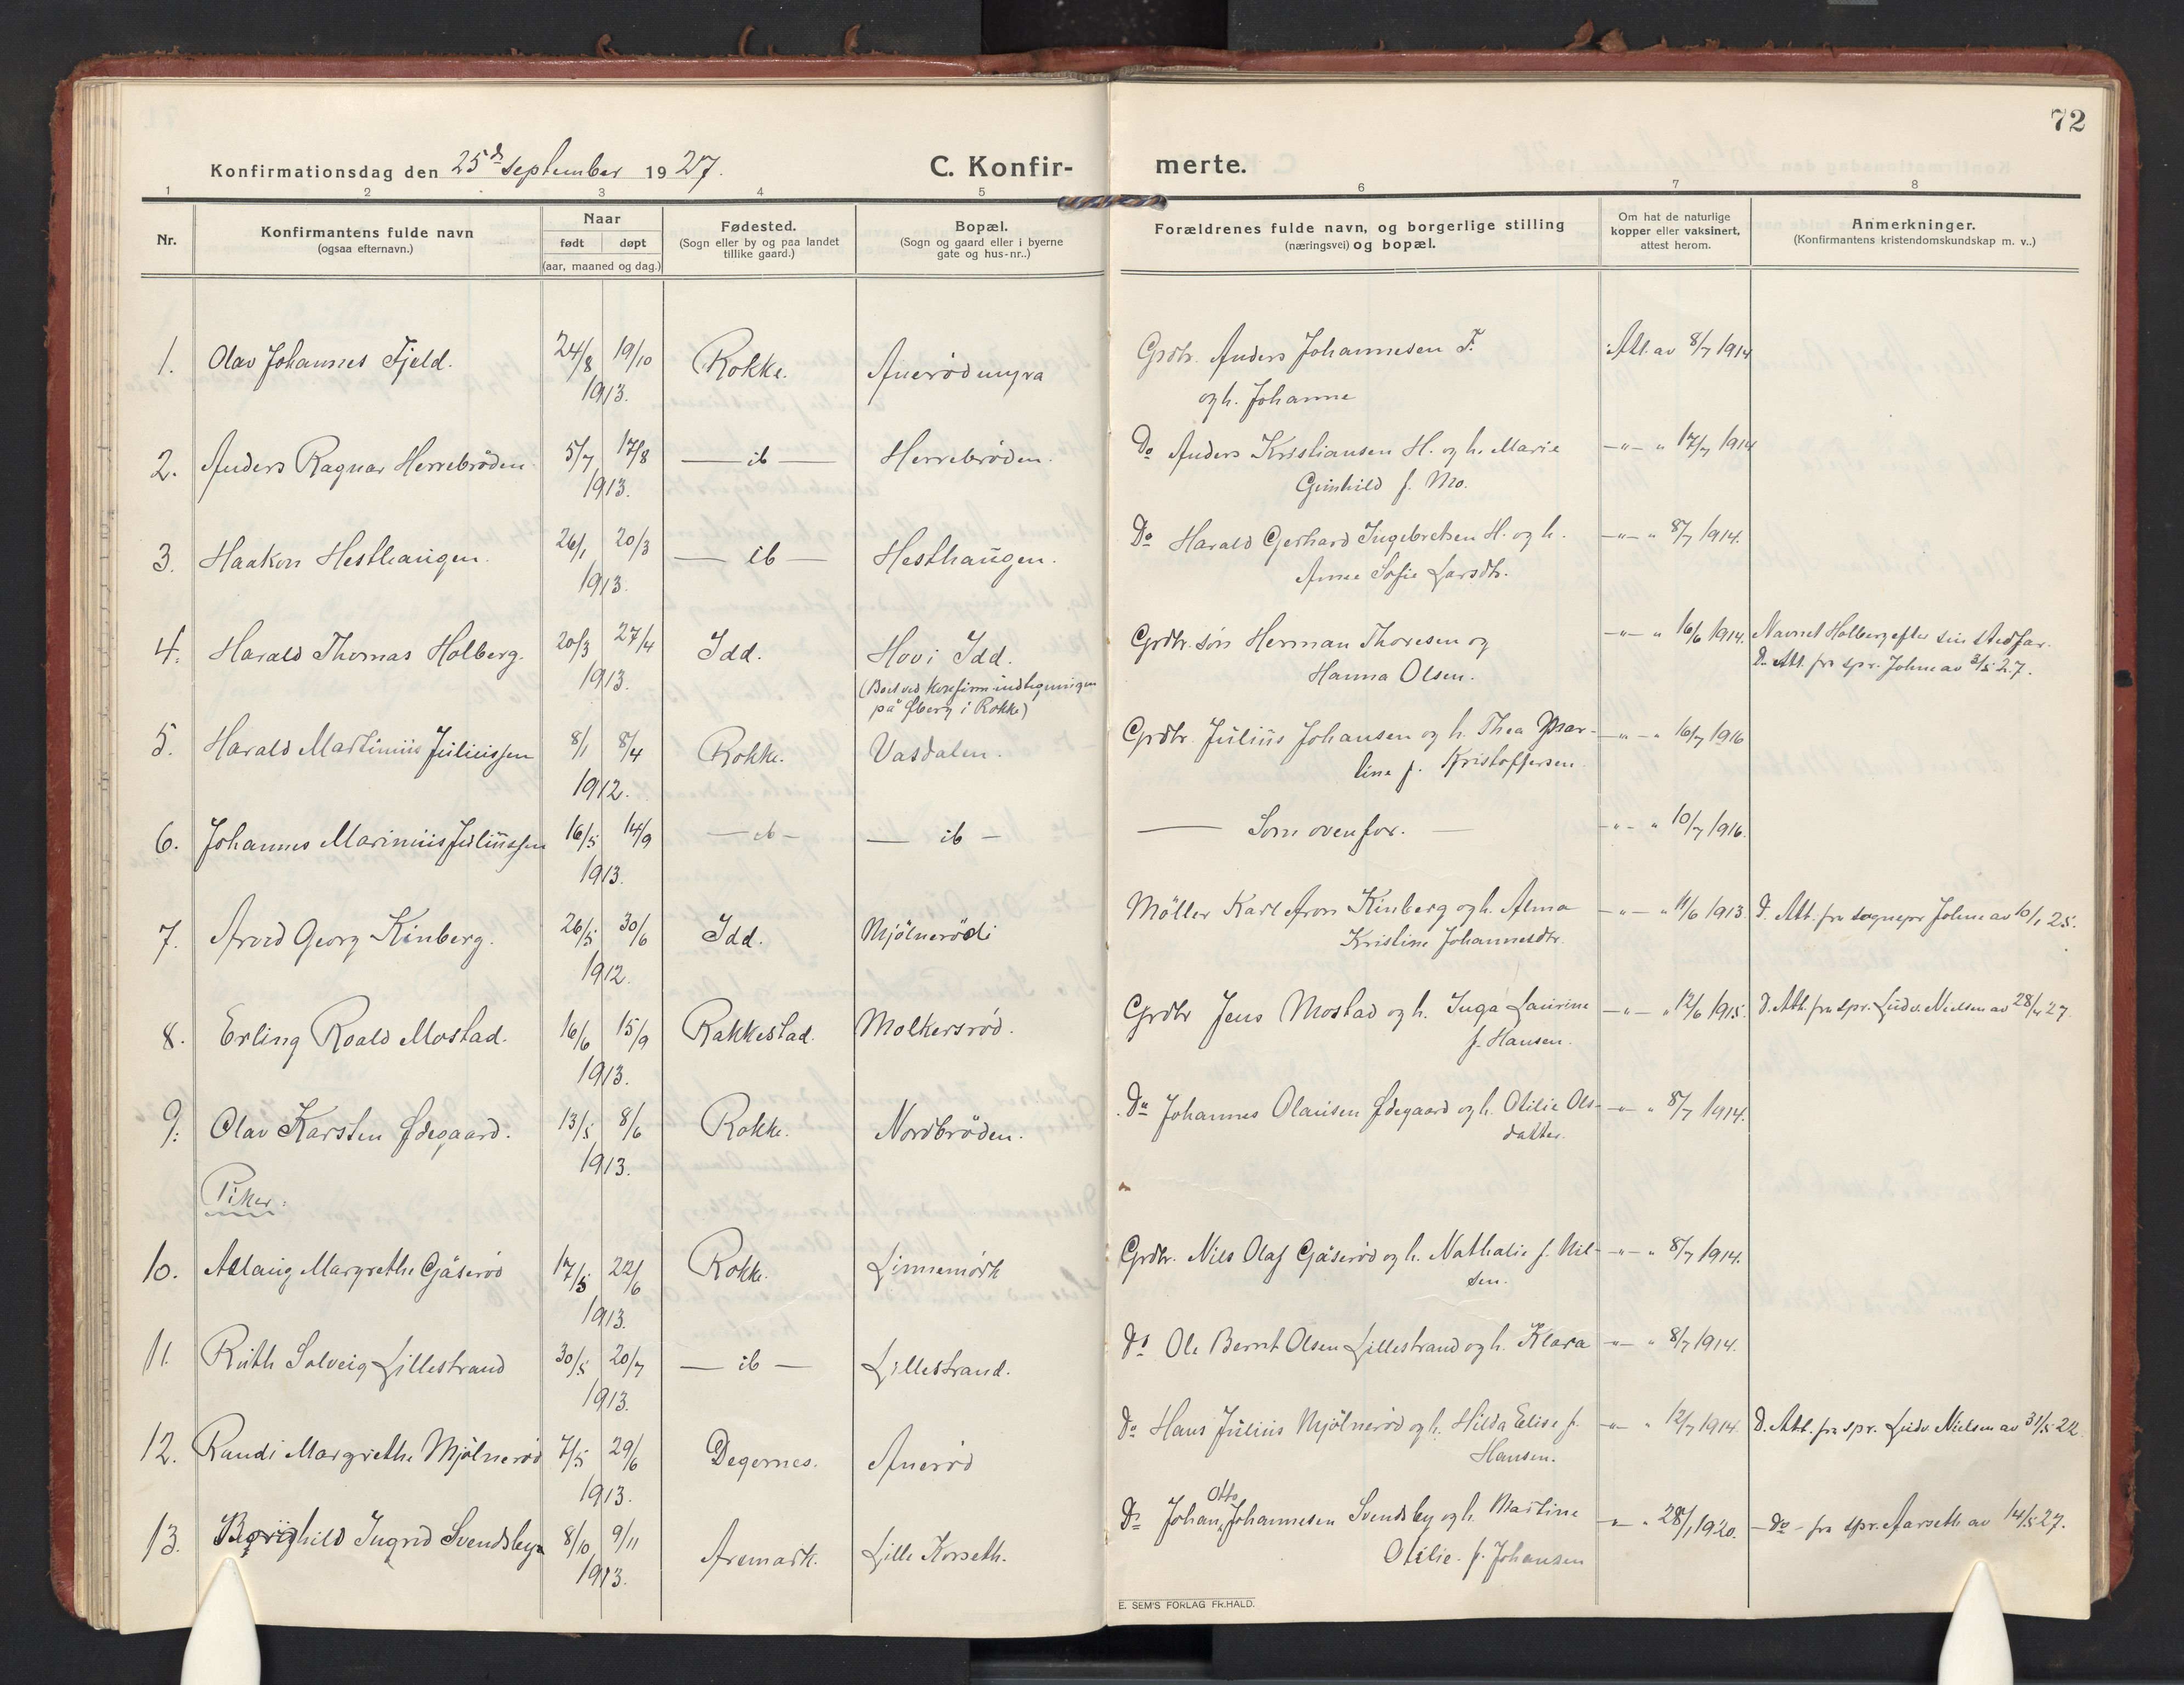 72
Konfirmationsdag den 25de september 1927. C. Konfir- merte.
1 2 3 4 5 6 7 8
Nr. Konfirmantens fulde navn (ogsaa efternavn.) Naar født døpt (aar, maaned og dag.) Fødested. (Sogn eller by og paa landet tillike gaard.) Bopæl. (Sogn og gaard eller i byerne gate og hus-nr..) Forældrenes fulde navn, og borgerlige stilling (næringsvei) og bopæl. Om hat de naturlige kopper eller vaksinert, attest herom. Anmerkninger. (Konfirmantens kristendomskundskap m. v..)
1. Olav Johannes Fjeld. 24/8 19/10 1913. Rokke. Anerødmyra Grdbr. Anders Johannesen F. Att. av 8/7 1914
og h. Johanne
2. Anders Ragnar Herrebrøden. 5/7 17/8 1913. — ib — Herrebrøden. Do Anders Kristiansen H. og h. Marie —"— " 17/7 1914
Gunhild f. Mo.
3. Haakon Hesthaugen. 26/1 20/3 1913. — ib — Hesthaugen. Do Harald Gerhard Ingebretsen H. og h. —"— " 8/7 1914.
Anne Sofie Larsdtr.
4. Harald Thomas Holberg. 20/3 27/4 1913. Idd. Hov i Idd. Grdbr. søn Herman Thoresen og —"— " 16/6 1914. Navnet Holberg efter sin stedfar.
(Boet ved konfirm. på Øberg i Rokke) Hanna Olsen. D. Att. fra spr. Johne av 3/5 27.
5. Harald Martinius Juliussen 8/1 8/4 1912. Rokke. Vasdalen. Grdbr. Julius Johansen og h. Thea Mar- —"— " 16/7 1916
line f. Kristoffersen
6. Johannes Marinius Juliussen 16/5 14/9 1913. — ib — — ib — — Som ovenfor. — —"— " 10/7 1916.
7. Arvid Georg Kinberg. 26/5 30/6 1912. Idd. Mjølnerød i Møller Karl Aron Kinberg og h. Alma —"— " 11/6 1913. D. Att. fra sognepr Johne av 10/1 25.
Kristine Johannesdtr.
8. Erling Roald Mostad. 16/6 15/9 1913. Rakkestad. Molkersrød. Grdbr Jens Mostad og h. Inga Laurine —"— " 12/6 1915. D. Att. fra spr. Ludv. Nielsen av 28/4 27.
f. Hansen.
9. Olav Karsten Ødegaard. 13/5 8/6 1913. Rokke. Nordbrøden. Do Johannes Olausen Ødegaard og h. Otilie Ols- —"— " 8/7 1914.
datter.
Piker:
10. Aslaug Margrethe Gåserød 17/5 22/6 1913. Rokke. Linnemørk Grdbr. Nils Olaf Gåserød og h. Nathalie f. Nil- —"— " 8/7 1914.
sen.
11. Ruth Solveig Lillestrand 30/5 20/7 1913. — ib — Lillestrand. Do Ole Bernt Olsen Lillestrand og h. Klara —"— " 8/7 1914.
12. Randi Margrethe Mjølnerød 7/5 29/6 1913. Degernes. Anerød Do Hans Julius Mjølnerød og h. Hilda Elise f. —"— " 12/7 1914. D. Att. fra spr. Ludv. Nielsen av 31/5 22
Hansen.
13. Borghild Ingrid Svendsby 8/10 9/11 1913. Aremark. Lille Korseth. Do Johan Otto Johannesen Svendsby og h. Martine —"— " 28/1 1920. — do — fra spr. Aarseth av 14/5 27.
Otilie f. Johansen
E. SEM'S FORLAG FR.HALD.